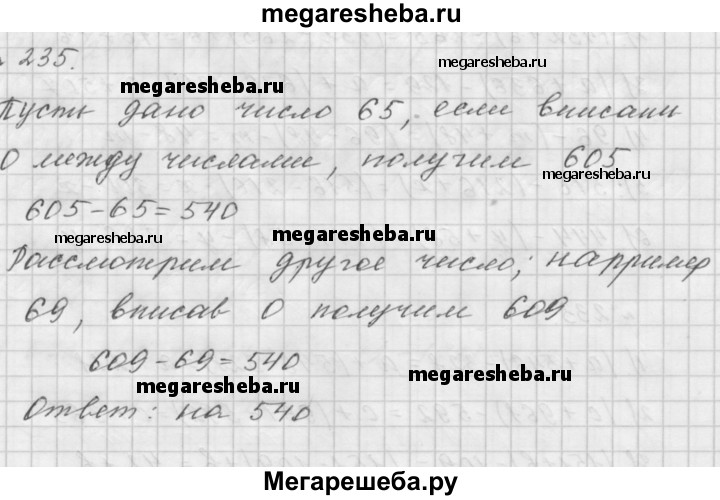 megaresheba.ru
235.
megaresheba.ru
Пусть дано число 65, если вписали
0 между числами, получим 605
megaresheba.ru
605-65=540
megaresheba.ru
megaresheba.ru
Рассмотрим другое число, напрример
69, вписав 0 получим 609
609-69=540
megaresheba.ru
megaresheba.ru
Ответ: на 540
Мегарешеба.ру